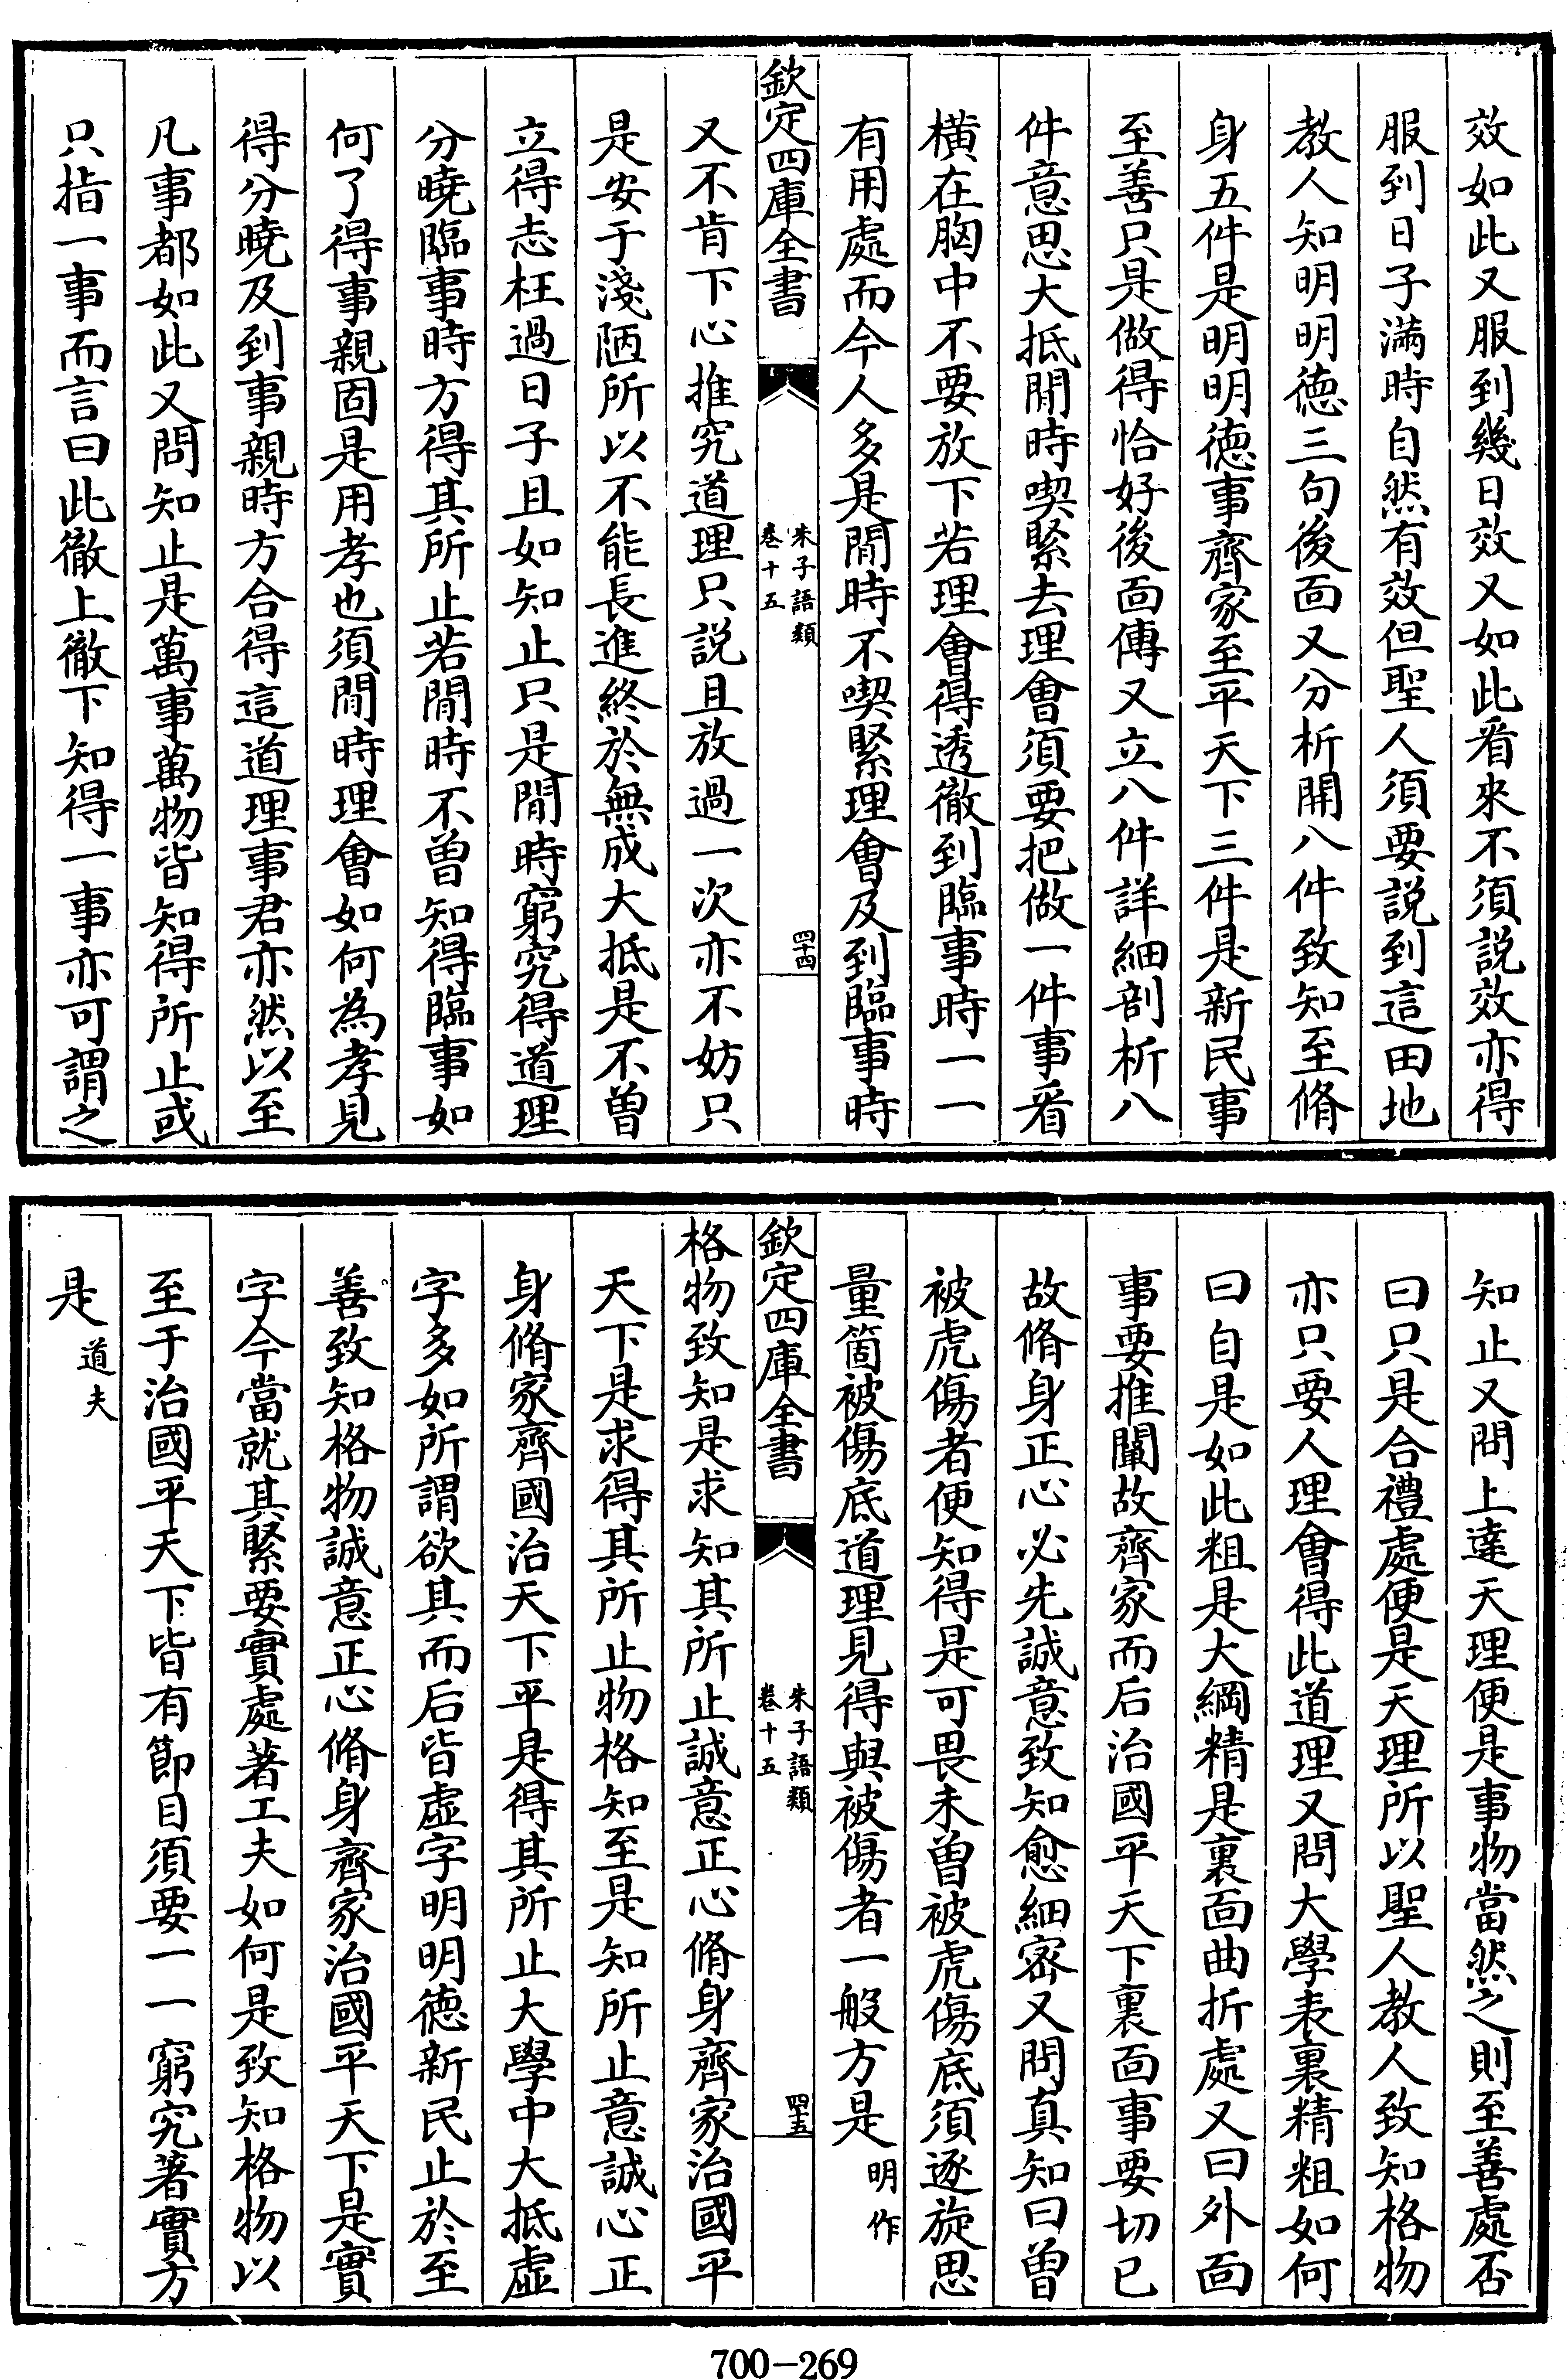 效如此又服到幾日效又如此看來不須說效亦得
服到日子滿時自然有效但聖人須要說到這田地
教人知明明德三句後面又分析開八件致知至脩
身五件是明明德事齊家至平天下三件是新民事
至善只是做得恰好後面傳又立八件詳細剖析八
件意思大抵閒時喫緊去理會須要把做一件事看
橫在胸中不要放下若理會得透徹到臨事時一一
有用處而今人多是閒時不喫緊理會及到臨事時
欽定四庫全書
朱子語類
卷十五
四十四
又不肯下心推究道理只說且放過一次亦不妨只
是安于淺陋所以不能長進終於無成大抵是不曾
立得志枉過日子且如知止只是閒時窮究得道理
分曉臨事時方得其所止若閒時不曾知得臨事如
何了得事親固是用孝也須閒時理會如何為孝見
得分曉及到事親時方合得這道理事君亦然以至
凡事都如此又問知止是萬事萬物皆知得所止或
只指一事而言曰此徹上徹下知得一事亦可謂之
知止又問上達天理便是事物當然之則至善處否
曰只是合禮處便是天理所以聖人教人致知格物
亦只要人理會得此道理又問大學表裏精粗如何
曰自是如此粗是大綱精是裏面曲折處又曰外面
事要推闡故齊家而后治國平天下裏面事要切已
故脩身正心必先誠意致知愈細密又問真知曰曾
被虎傷者便知得是可畏未曾被虎傷底須逐旋思
量箇被傷底道理見得與被傷者一般方是 明作
欽定四庫全書
朱子語類
卷十五
四十五
格物致知是求知其所止誠意正心脩身齊家治國平
天下是求得其所止物格知至是知所止意誠心正
身脩家齊國治天下平是得其所止大學中大抵虛
字多如所謂欲其而后皆虛字明明德新民止於至
善致知格物誠意正心脩身齊家治國平天下是實
字今當就其緊要實處著工夫如何是致知格物以
至于治國平天下皆有節目須要一一窮究著實方
是 道夫
700-269